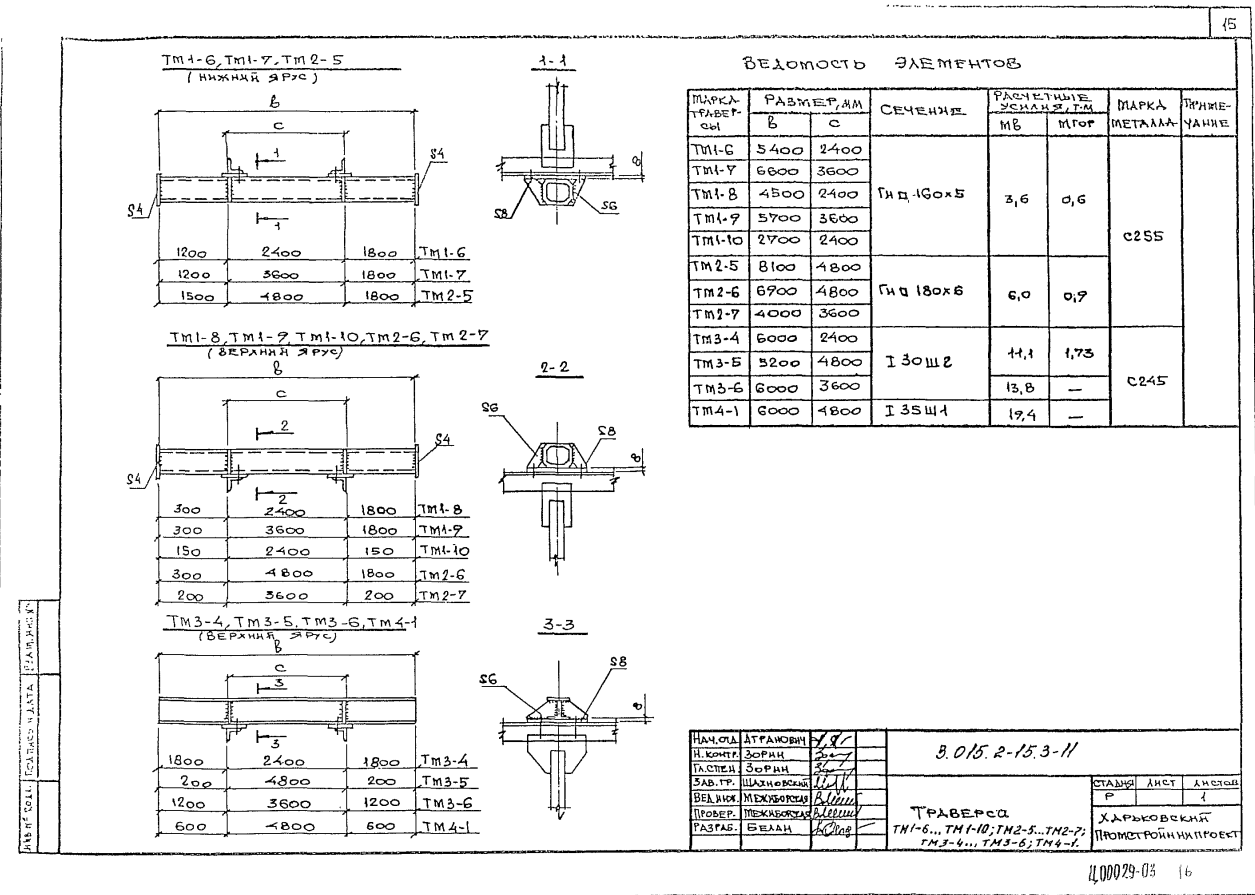 15
ТМ1-6, ТМ1-7, ТМ2-5
(НИЖНИЙ ЯРУС)
В
С
1
S4
S4
1
1200 2400 1800 ТМ1-6
1200 3600 1800 ТМ1-7
1500 4800 1800 ТМ2-5
1-1
8
S8
S6
ТМ1-8, ТМ1-9, ТМ1-10, ТМ2-6, ТМ2-7
(ВЕРХНИЙ ЯРУС)
В
С
2
S4
S4
2
300 2400 1800 ТМ1-8
300 3600 1800 ТМ1-9
150 2400 150 ТМ1-10
300 4800 1800 ТМ2-6
200 3600 200 ТМ2-7
2-2
S6
S8
8
ТМ3-4, ТМ3-5, ТМ3-6, ТМ4-1
(ВЕРХНИЙ ЯРУС)
В
С
3
3
1800 2400 1800 ТМ3-4
200 4800 200 ТМ3-5
1200 3600 1200 ТМ3-6
600 4800 600 ТМ4-1
3-3
S6
S8
8
ВЕДОМОСТЬ ЭЛЕМЕНТОВ
МАРКА ТРАВЕР- СЫ РАЗМЕР, ММ СЕЧЕНИЕ РАСЧЕТНЫЕ УСИЛИЯ, Т·М МАРКА МЕТАЛЛА ПРИМЕ- ЧАНИЕ
В С МВ МГОР
ТМ1-6 5400 2400
ТМ1-7 6600 3600
ТМ1-8 4500 2400 Гн □ 160×5 3,6 0,6
ТМ1-9 5700 3600
ТМ1-10 2700 2400 С255
ТМ2-5 8100 4800
ТМ2-6 6900 4800 Гн □ 180×6 6,0 0,9
ТМ2-7 4000 3600
ТМ3-4 6000 2400
ТМ3-5 5200 4800 I 30Ш2 11,1 1,73
ТМ3-6 6000 3600 13,8 — С245
ТМ4-1 6000 4800 I 35Ш1 19,4 —
НАЧ. ОТД. АГРАНОВИЧ
Н. КОНТР. ЗОРИН
ГЛ. СПЕЦ. ЗОРИН
ЗАВ. ГР. ШАХНОВСКИЙ
ВЕД. ИНЖ. МЕЖИБОРСКАЯ
ПРОВЕР. МЕЖИБОРСКАЯ
РАЗРАБ. БЕЛАН
3.015.2-15.3-11
ТРАВЕРСА
ТМ1-6...ТМ1-10; ТМ2-5...ТМ2-7;
ТМ3-4...ТМ3-6; ТМ4-1.
СТАДИЯ ЛИСТ ЛИСТОВ
Р 1
ХАРЬКОВСКИЙ
ПРОМСТРОЙНИИПРОЕКТ
ИНВ № ПОДЛ. ПОДПИСЬ И ДАТА ВЗАМ. ИНВ №
Ц00029-03 16